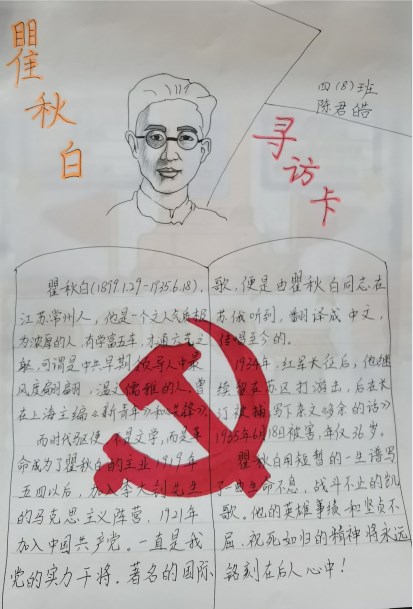 瞿秋白
四(8)班
陈君皓
寻访卡
瞿秋白(1899.1.29-1935.6.18),
江苏常州人,他是个文人气质极
为浓厚的人,有学富五车,才通六艺之
能,可谓是中共早期领导人中最
风度翩翩,温文儒雅的人,曾
在上海主编《新青年》和《先锋》。
而时代驱使,不是文学,而是革
命成为了瞿秋白的主业,1919年
五四以后,加入李大钊先生
的马克思主义阵营,1921年
加入中国共产党。一直是我
党的实力干将。著名的国际
歌,便是由瞿秋白同志在
苏俄听到,翻译成中文,
传唱至今的。
1934年,红军大位后,他继
续留在苏区打游击,后在长
汀被捕,写下杂文《多余的话》
1935年6月18日被害,年仅36岁。
瞿秋白用短暂的一生谱写
了曲生命不息,战斗不止的凯
歌。他的英雄事接和坚贞不
屈、视死如归的精神将永远
铭刻在后人心中!